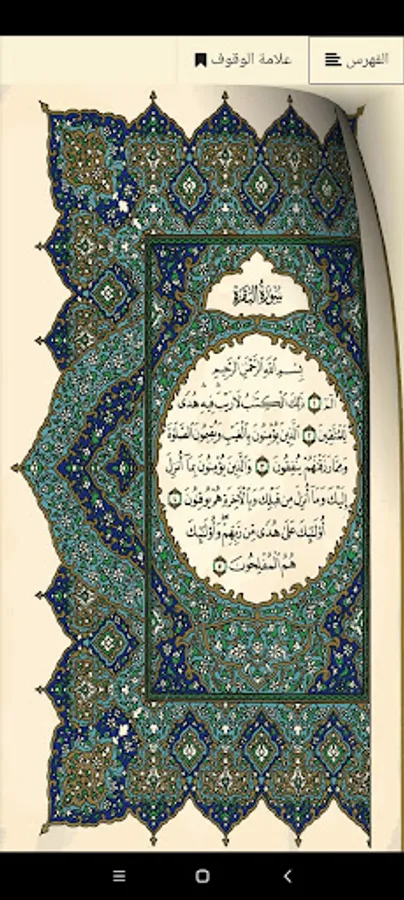 الفهرس
علامة الوقوف
سُورَةُ البَقَرَةِ
بِسْمِ اللَّهِ الرَّحْمَٰنِ الرَّحِيمِ
الٓمٓ ۝١ ذَٰلِكَ الْكِتَٰبُ لَا رَيْبَ فِيهِ هُدًى
لِلْمُتَّقِينَ ۝٢ الَّذِينَ يُؤْمِنُونَ بِالْغَيْبِ وَيُقِيمُونَ الصَّلَوٰةَ
وَمِمَّا رَزَقْنَٰهُمْ يُنْفِقُونَ ۝٣ وَالَّذِينَ يُؤْمِنُونَ بِمَا أُنْزِلَ
إِلَيْكَ وَمَا أُنْزِلَ مِنْ قَبْلِكَ وَبِالْآخِرَةِ هُمْ يُوقِنُونَ ۝٤
أُولَٰئِكَ عَلَىٰ هُدًى مِنْ رَبِّهِمْ وَأُولَٰئِكَ
هُمُ الْمُفْلِحُونَ ۝٥